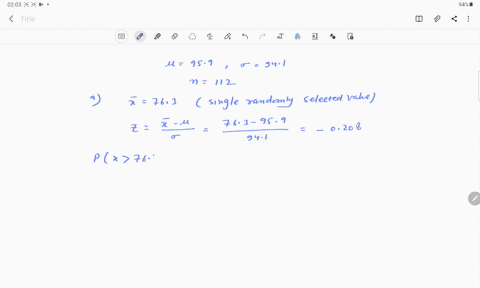 02:03
94%
Title
μ = 95.9 , σ = 94.1
n = 112
a) x̄ = 76.3 ( single randomly selected value)
Z = (x̄ - μ)/σ = (76.3 - 95.9)/94.1 = - 0.208
P( x > 76.